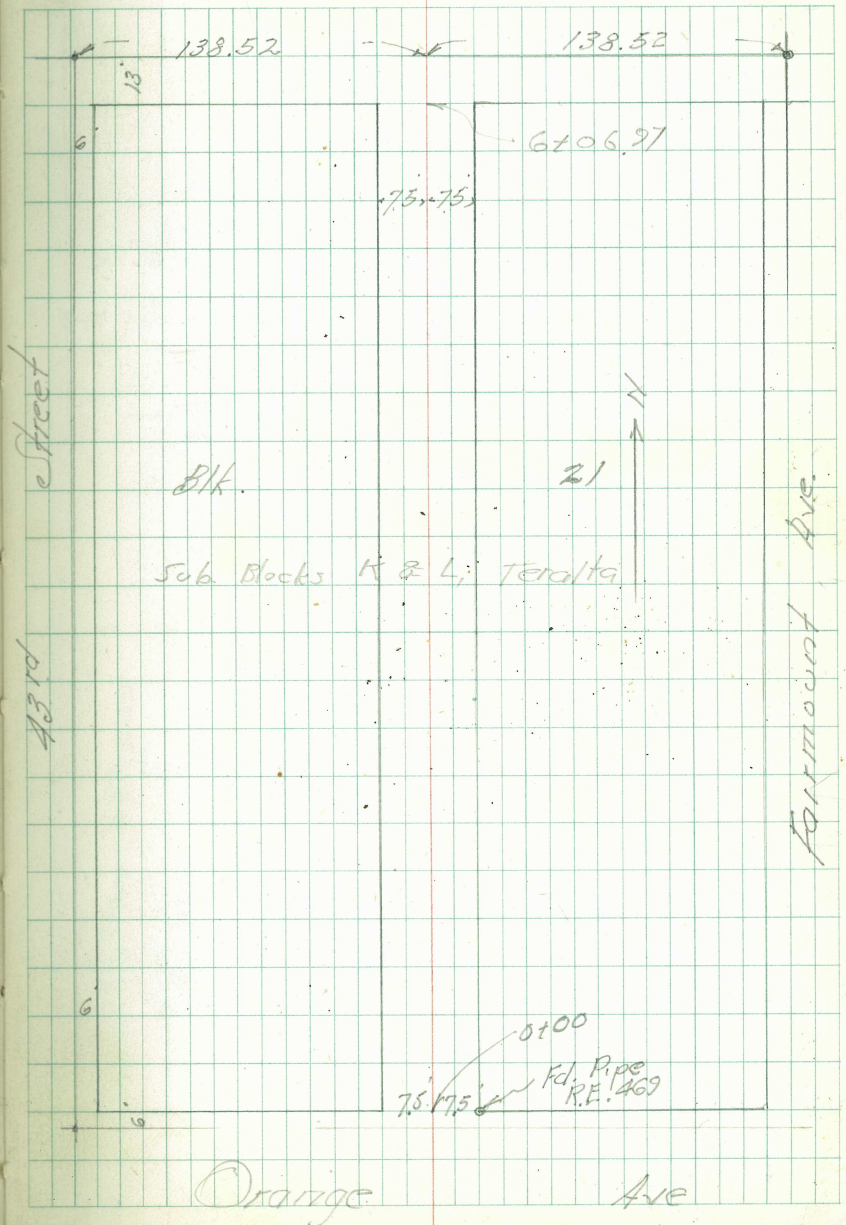 138.52 138.52
13'
6'
6+06.97
7.5' 7.5'
N
Street
Blk. 21
Sub. Blocks K & L, Teralta
43rd
Fairmount Ave.
6'
0+00
Fd. Pipe
R.E. 469
7.5' 7.5'
6'
Orange Ave